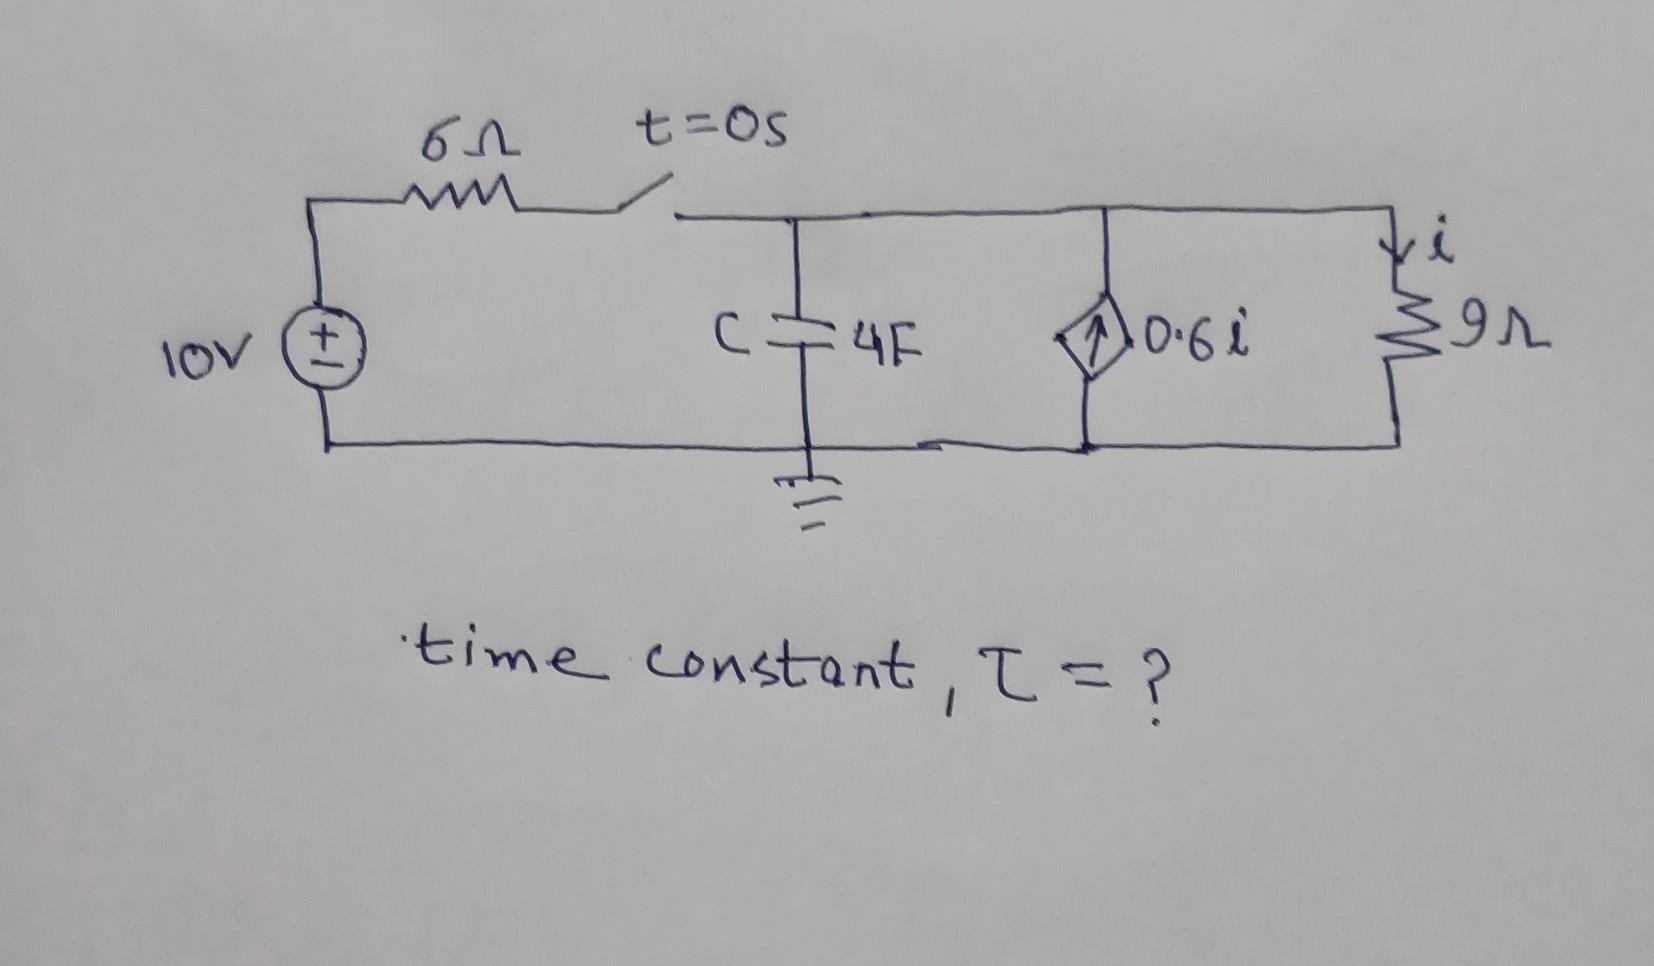 6Ω t=0s
i
10V + − C 4F 0.6i 9Ω
time constant, τ = ?